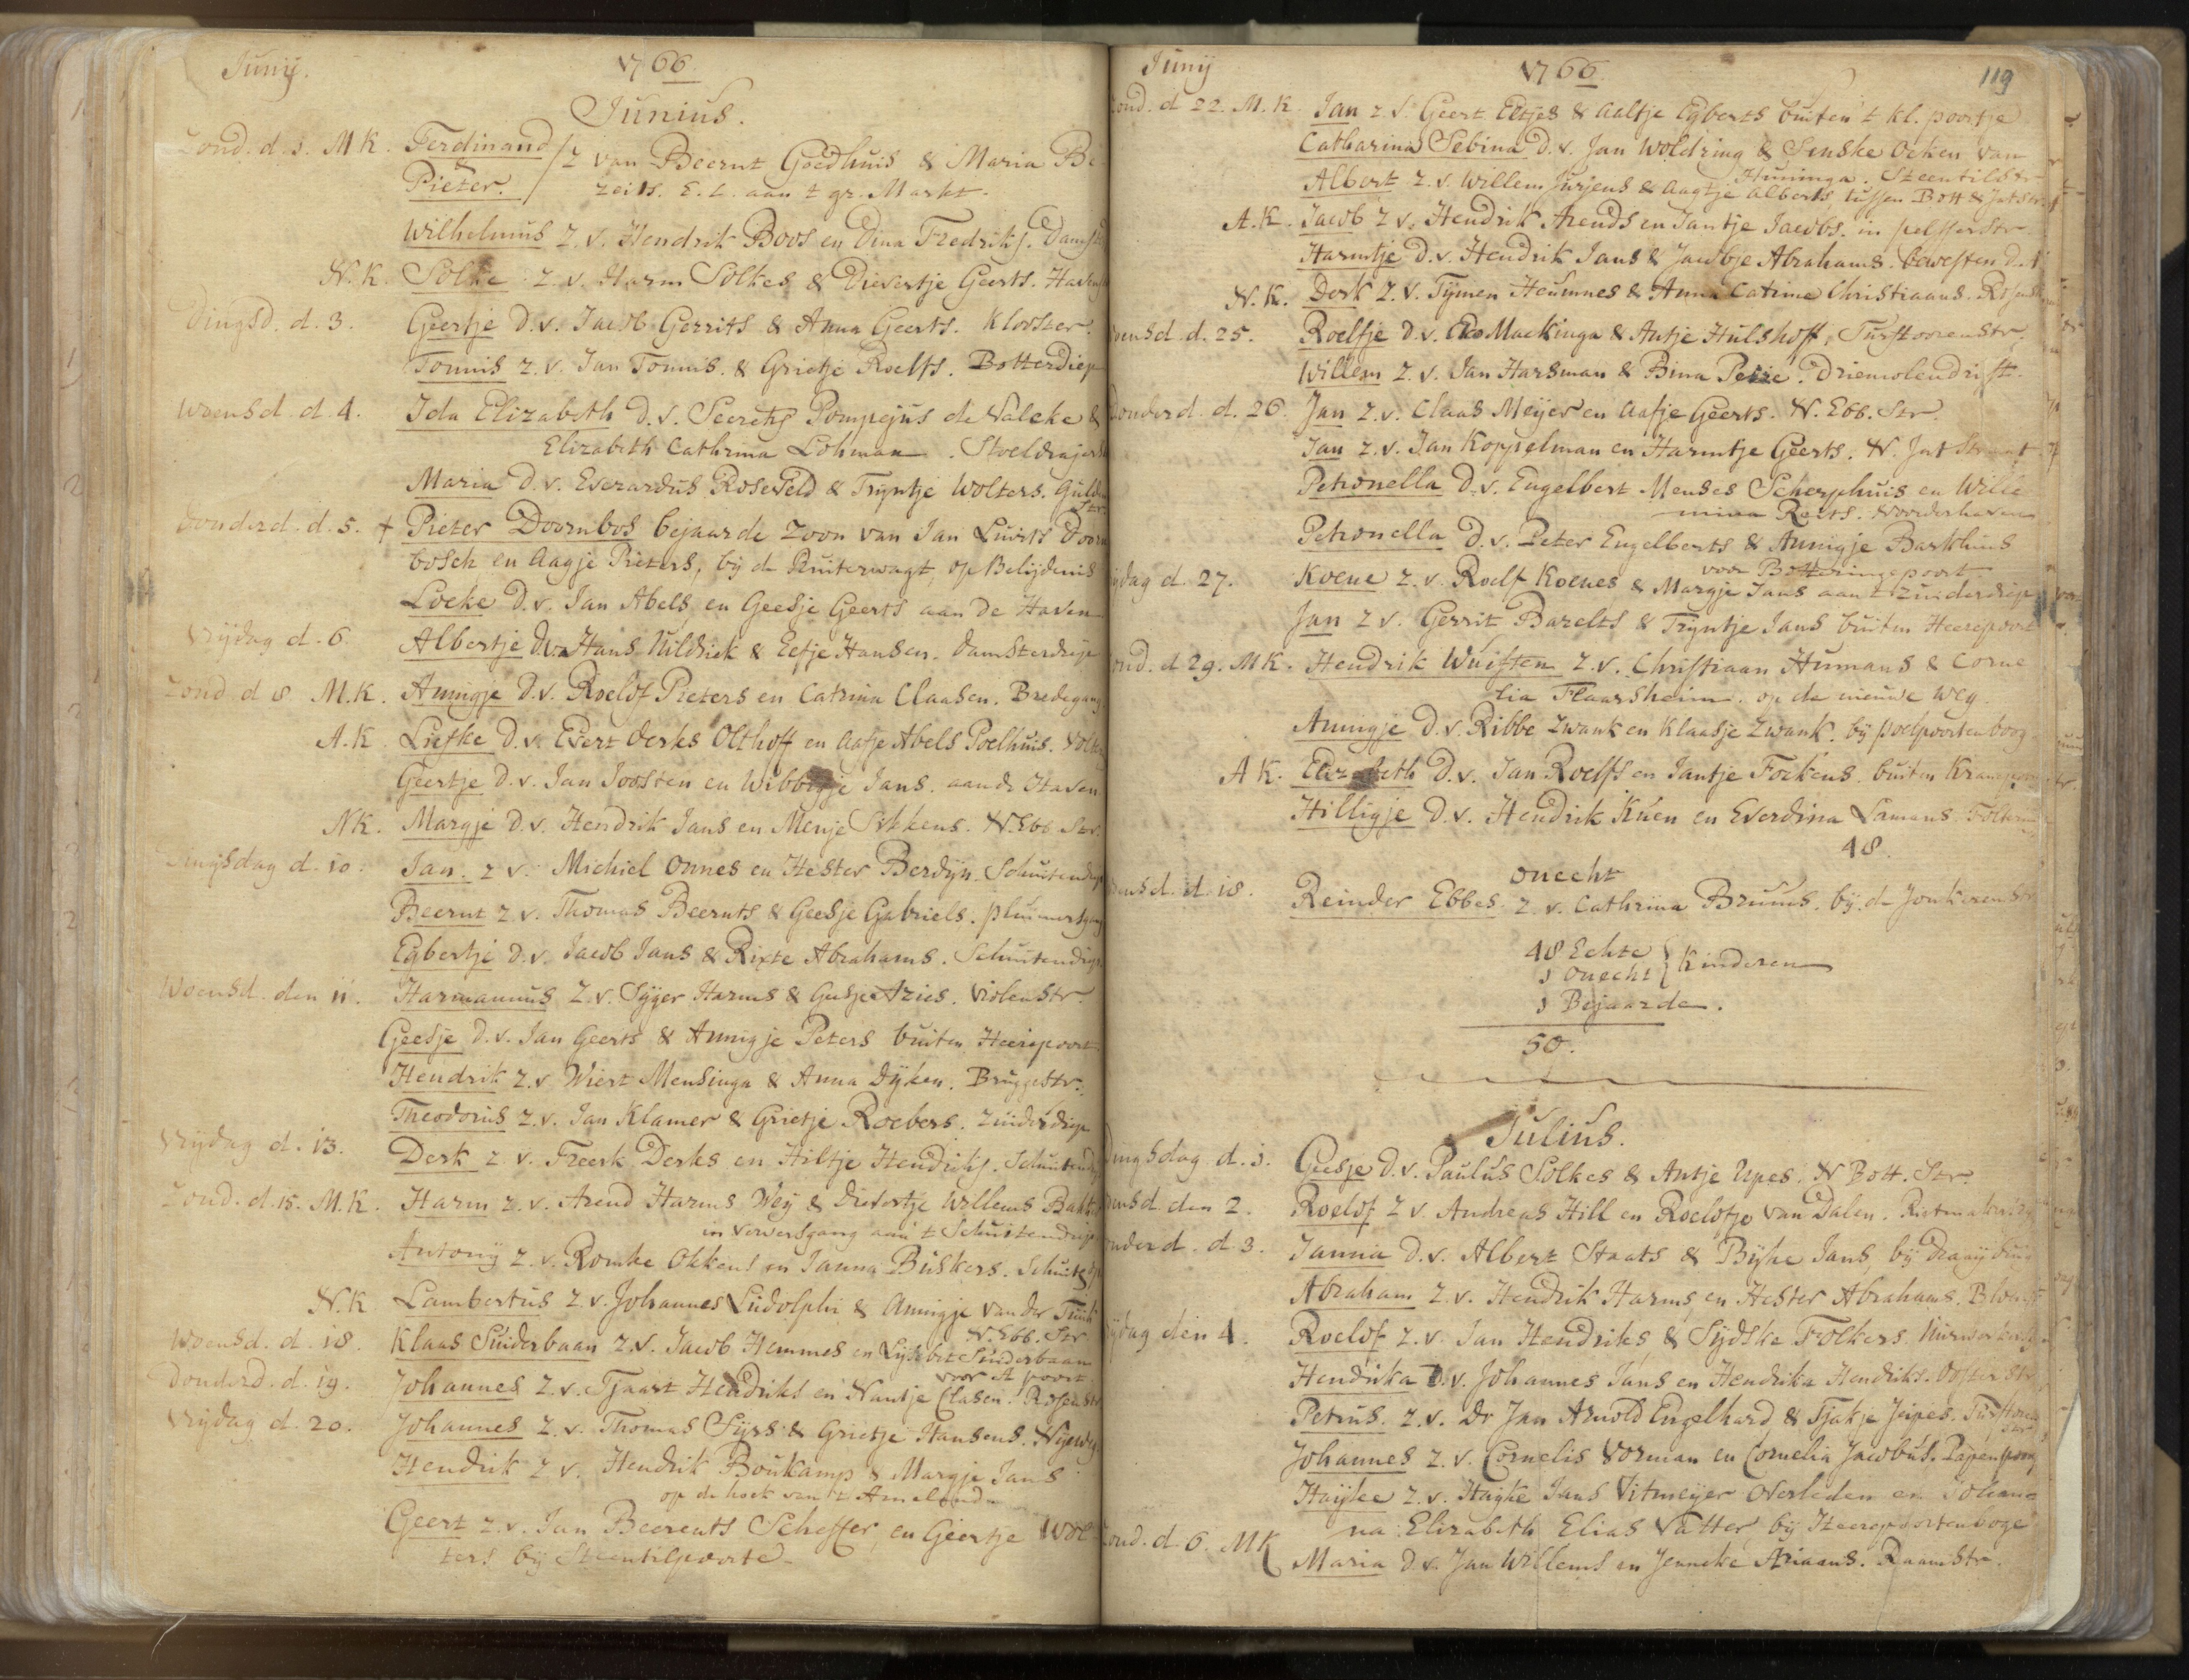 Junij. 1766
Junius.
Zond. d. 1. M K. Ferdinand / Z van Beernt Goedhuis & Maria Be
Pieter. / zeils. E. L. aan t gr. Markt.
Wilhelmus Z. v. Hendrik Boos en Dina Fredriks.
N. K. Solke z. v. Harm Solkes & Dievertje Geerts.
Dingsd. d. 3. Geertje D. v. Jacob Gerrits & Anna Geerts. Klooster.
Tonnis z. v. Jan Tonnis. & Grietje Roelfs. Botterdiep
Woensd. d. 4. Ida Elizabeth D. v. Secrets Pompejus de Valcke &
Elizabeth Cathrina Lohman. Stoeldrajers
Maria D. v. Everardus Roseveld & Trijntje Wolters. Gulde
Str.
Donderd. d. 5. + Pieter Doornbos bejaarde zoon van Jan Luirts Doorn
bosch en Aagje Pieters, bij de Ruiterwagt, op Belijdenis
Loeke D. v. Jan Abels en Geesje Geerts aan de Haven
Vrijdag d. 6. Albertje D. v. Hans Hildrick & Eefje Hansen. Damsterdiep
Zond. d 8 M. K. Annigje D. v. Roelof Pieters en Catrina Claasen. Bredegang
A. K. Liefke D. v. Evert Derks Olthoff en Aafje Abels Poelhuis.
Geertje D. v. Jan Joosten en Wibbigje Jans. aande Haven
N K. Margje D. v. Hendrik Jans en Menje Sikkens. N. Ebb Str.
Dingsdag d. 10. Jan. z v. Michiel Onnes en Hester Berdijn. Schuitendiep
Beernt z v. Thomas Beernts & Geesje Gabriels.
Egbertje D. v. Jacob Jans & Rixte Abrahams. Schuitendiep
Woensd. den 11. Harmannus Z. v. Sijger Harms & Geesje Azies. Violenstr.
Geesje D. v. Jan Geerts & Annigje Peters buiten Heerepoort
Hendrik z. v Wiert Mensinga & Anna Dijken. Bruggestr.
Theodorus z. v. Jan Klamer & Grietje Roebers. Zuiderdiep
Vrijdag d. 13. Derk z. v. Freerk Derks en Hiltje Hendriks. Schuitendiep
Zond. d. 15. M. K. Harm z. v. Arend Harms Weij & Divertje Willems Bakk
in Ververs gang aan 't Schuitendiep
Antonij z. v. Romke Okkens en Janna Buskers.
N. K Lambertus z. v. Johannes Ludolphi & Annigje van der Tuuk
N. Ebb. Str
Woensd. d. 18. Klaas Suiderbaan z. v. Jacob Hemmes en Lijsebet Suiderbaan
voor A poort
Donderd. d. 19. Johannes z. v. Tjaart Hendriks en Nantje Clasen. Rosenstr
Vrijdag d. 20. Johannes z. v. Thomas Sijrs & Grietje Hansens.
Hendrik z v. Hendrik Boukamp & Margje Jans
op de hoek van 't Ameland
Geert z. v. Jan Beerents Scheffer, en Geertje Wol
ters bij Steentilpoorte
Junij 1766 119
Zond. d 22. M. K. Jan z. v. Geert Eltjes & Aaltje Egberts buiten 't kl. poortje
Catharina Sebina D. v. Jan Woldring & Senske Ocken van
Huninga. Steentilstr
Albert z. v. Willem Jurjens & Aagtje Alberts, tussen Bott & Jatstr.
A. K. Jacob z v. Hendrik Arends en Jantje Jacobs. in pelsterstr.
Harmtje D. v. Hendrik Jans & Jacobje Abrahams.
N. K. Derk z. v. Tijmen Heumnes & Anna Catrine Christiaans.
Woensd d. 25. Roelfje D. v. Eko Mackinga & Antje Hulshoff, Turftorenstr.
Willem z. v. Jan Harsman & Bina Petrie. Driemolendrift.
Donderd. d. 26. Jan z. v. Claas Meijer en Aafje Geerts. N. Ebb. Str.
Jan z. v. Jan Koppelman en Harmtje Geerts. N. Jat Straat
Petronella D. v. Engelbert Menses Scherphuis en Wille
mina Roels. Noorderhaven
Petronella D. v. Peter Engelberts & Annigje Barkhuis
voor Botteringepoort
Vrijdag d. 27. Koene z. v. Roelf Koenes & Margje Jans aan t Zuiderdiep
Jan z v. Gerrit Barelts & Trijntje Jans buiten Heerepoort
Zond. d 29. M K. Hendrik Wuisten z. v. Christiaan Humans & Corne
lia Flaarsheim. op de nieuwe weg.
Annigje D. v. Ribbe Zwank en Klaasje Zwank. bij poelpoortenboog
A K. Elizabeth D. v. Jan Roelfs en Jantje Fockens. buiten Kranepoort
Hilligje D. v. Hendrik Kuen en Everdina Lamans
48.
onecht
Woensd. d. 18. Reinder Ebbes. z. v. Cathrina Bruins. bij de Jonkerenstr
48 Echte } Kinderen
1 Onecht
1 Bejaarde.
50.
Julius.
Dingsdag d. 1. Geesje D. v. Paulus Solkes & Antje Upes. N Bott. Str.
Woensd. den 2. Roelof z v. Andreas Hill en Roelofje van Dalen.
Donderd. d. 3. Janna D. v. Albert Staats & Bijke Jans, bij
Abraham z. v. Hendrik Harms, en Hester Abrahams.
Vrijdag den 4. Roelof z. v. Jan Hendriks & Sijdske Folkers.
Hendrika D. v. Johannes Jans en Hendrika Hendriks. Oosterstr
Petrus. z. v. Dr Jan Arnold Engelhard & Tjakje Jeipes. Turftoren
Str
Johannes z. v. Cornelis Vorman en Cornelia Jacobus. Papengang
Haijke z. v. Haijke Jans Vitmeijer Overleden en Johan
na Elizabeth Elias Vatter bij Heerepoortenboge
Zond. d. 6. M K Maria D. v. Jan Willems en Jenneke Ariaans. Raamstr.